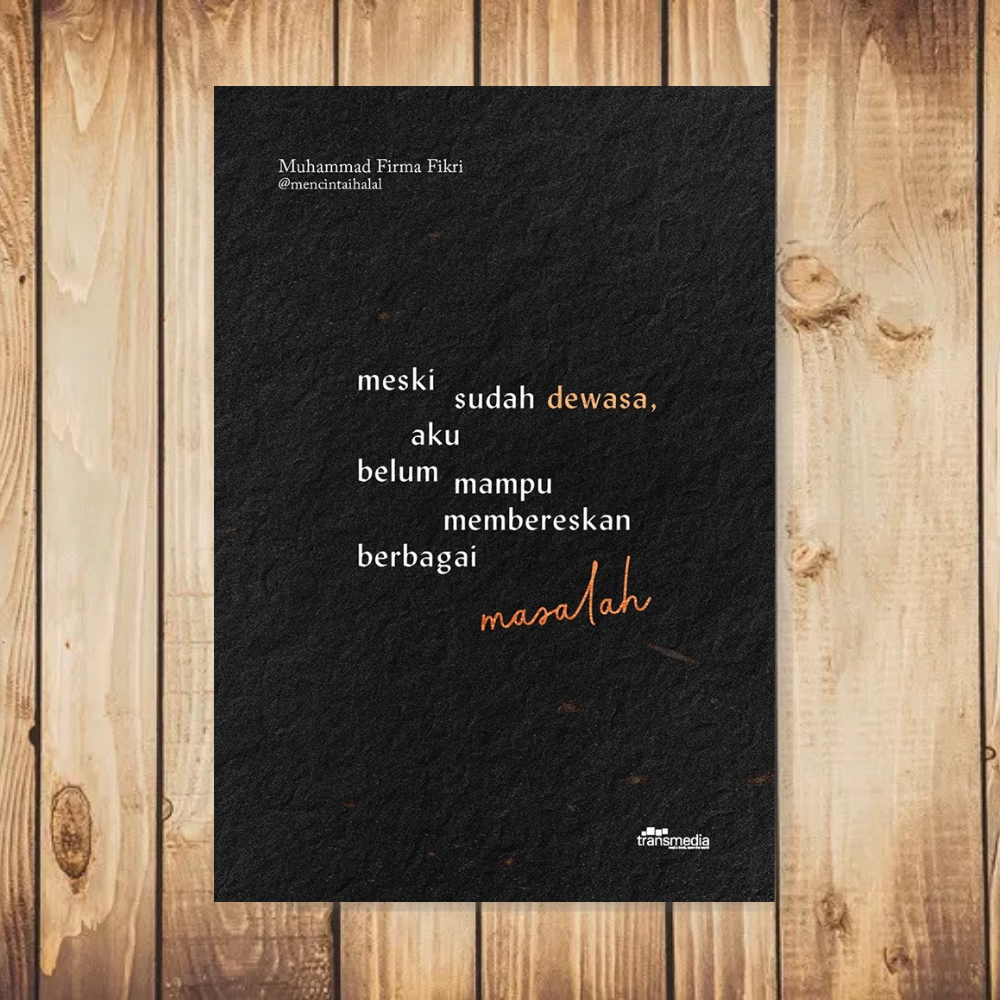 Muhammad Firma Fikri
@mencintaihalal
meski
sudah dewasa,
aku
belum
mampu
membereskan
berbagai
masalah
transmedia